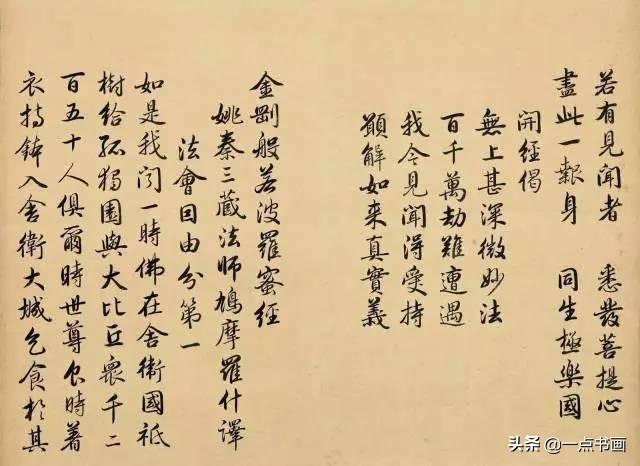 若有見聞者 悉發菩提心
盡此一報身 同生極樂國
開經偈
無上甚深微妙法
百千萬劫難遭遇
我今見聞得受持
願解如来真實義
金剛般若波羅蜜經
姚秦三蔵法師鳩摩羅什譯
法會因由分第一
如是我聞一時佛在舍衛國祇
樹給孤獨園與大比丘衆千二
百五十人俱爾時世尊食時著
衣持鉢入舍衛大城乞食於其
头条 @一点书画